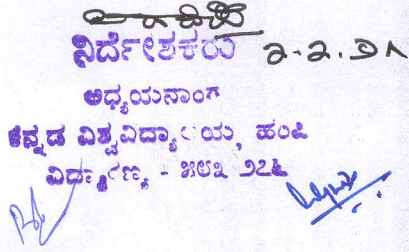 ನಿರ್ದೇಶಕರು ೨-೨-೨೧
ಅಧ್ಯಯನಾಂಗ
ಕನ್ನಡ ವಿಶ್ವವಿದ್ಯಾಲಯ, ಹಂಪಿ
ವಿದ್ಯಾರಣ್ಯ - ೫೮೩ ೨೭೬